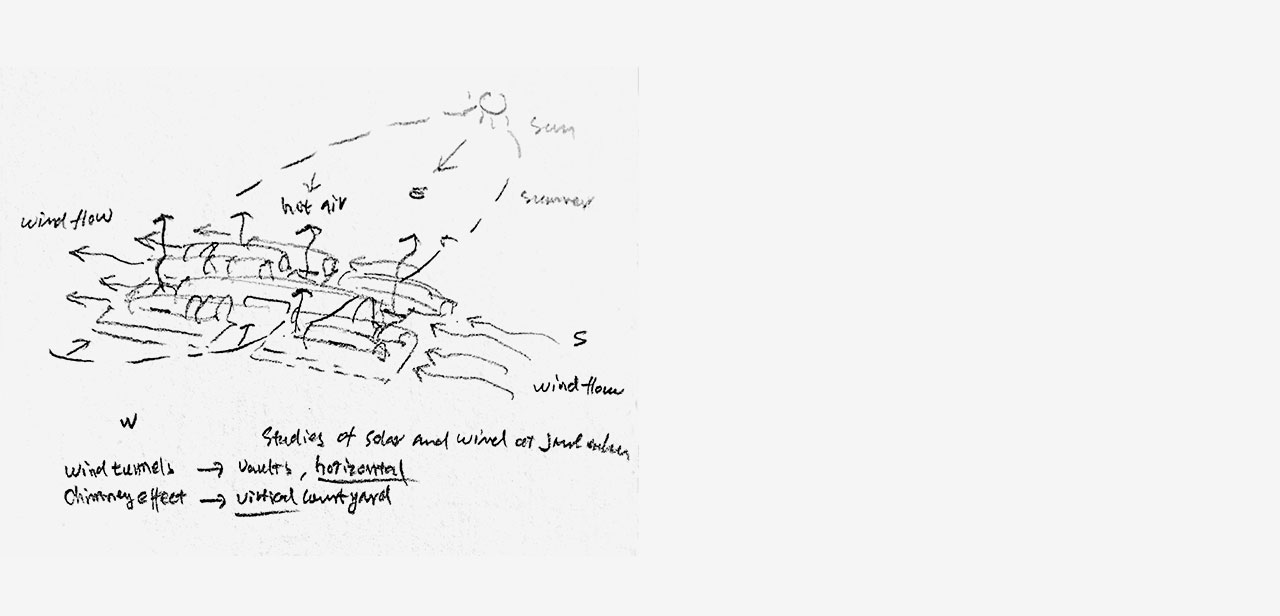 sun
summer
hot air
E
wind flow
S
wind flow
W
Studies of solar and wind at
wind tunnels → vaults, horizontal
Chimney effect → virtical courtyard